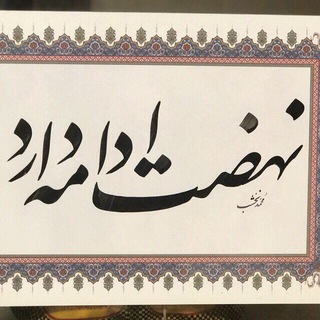 نهضت ادامه دارد